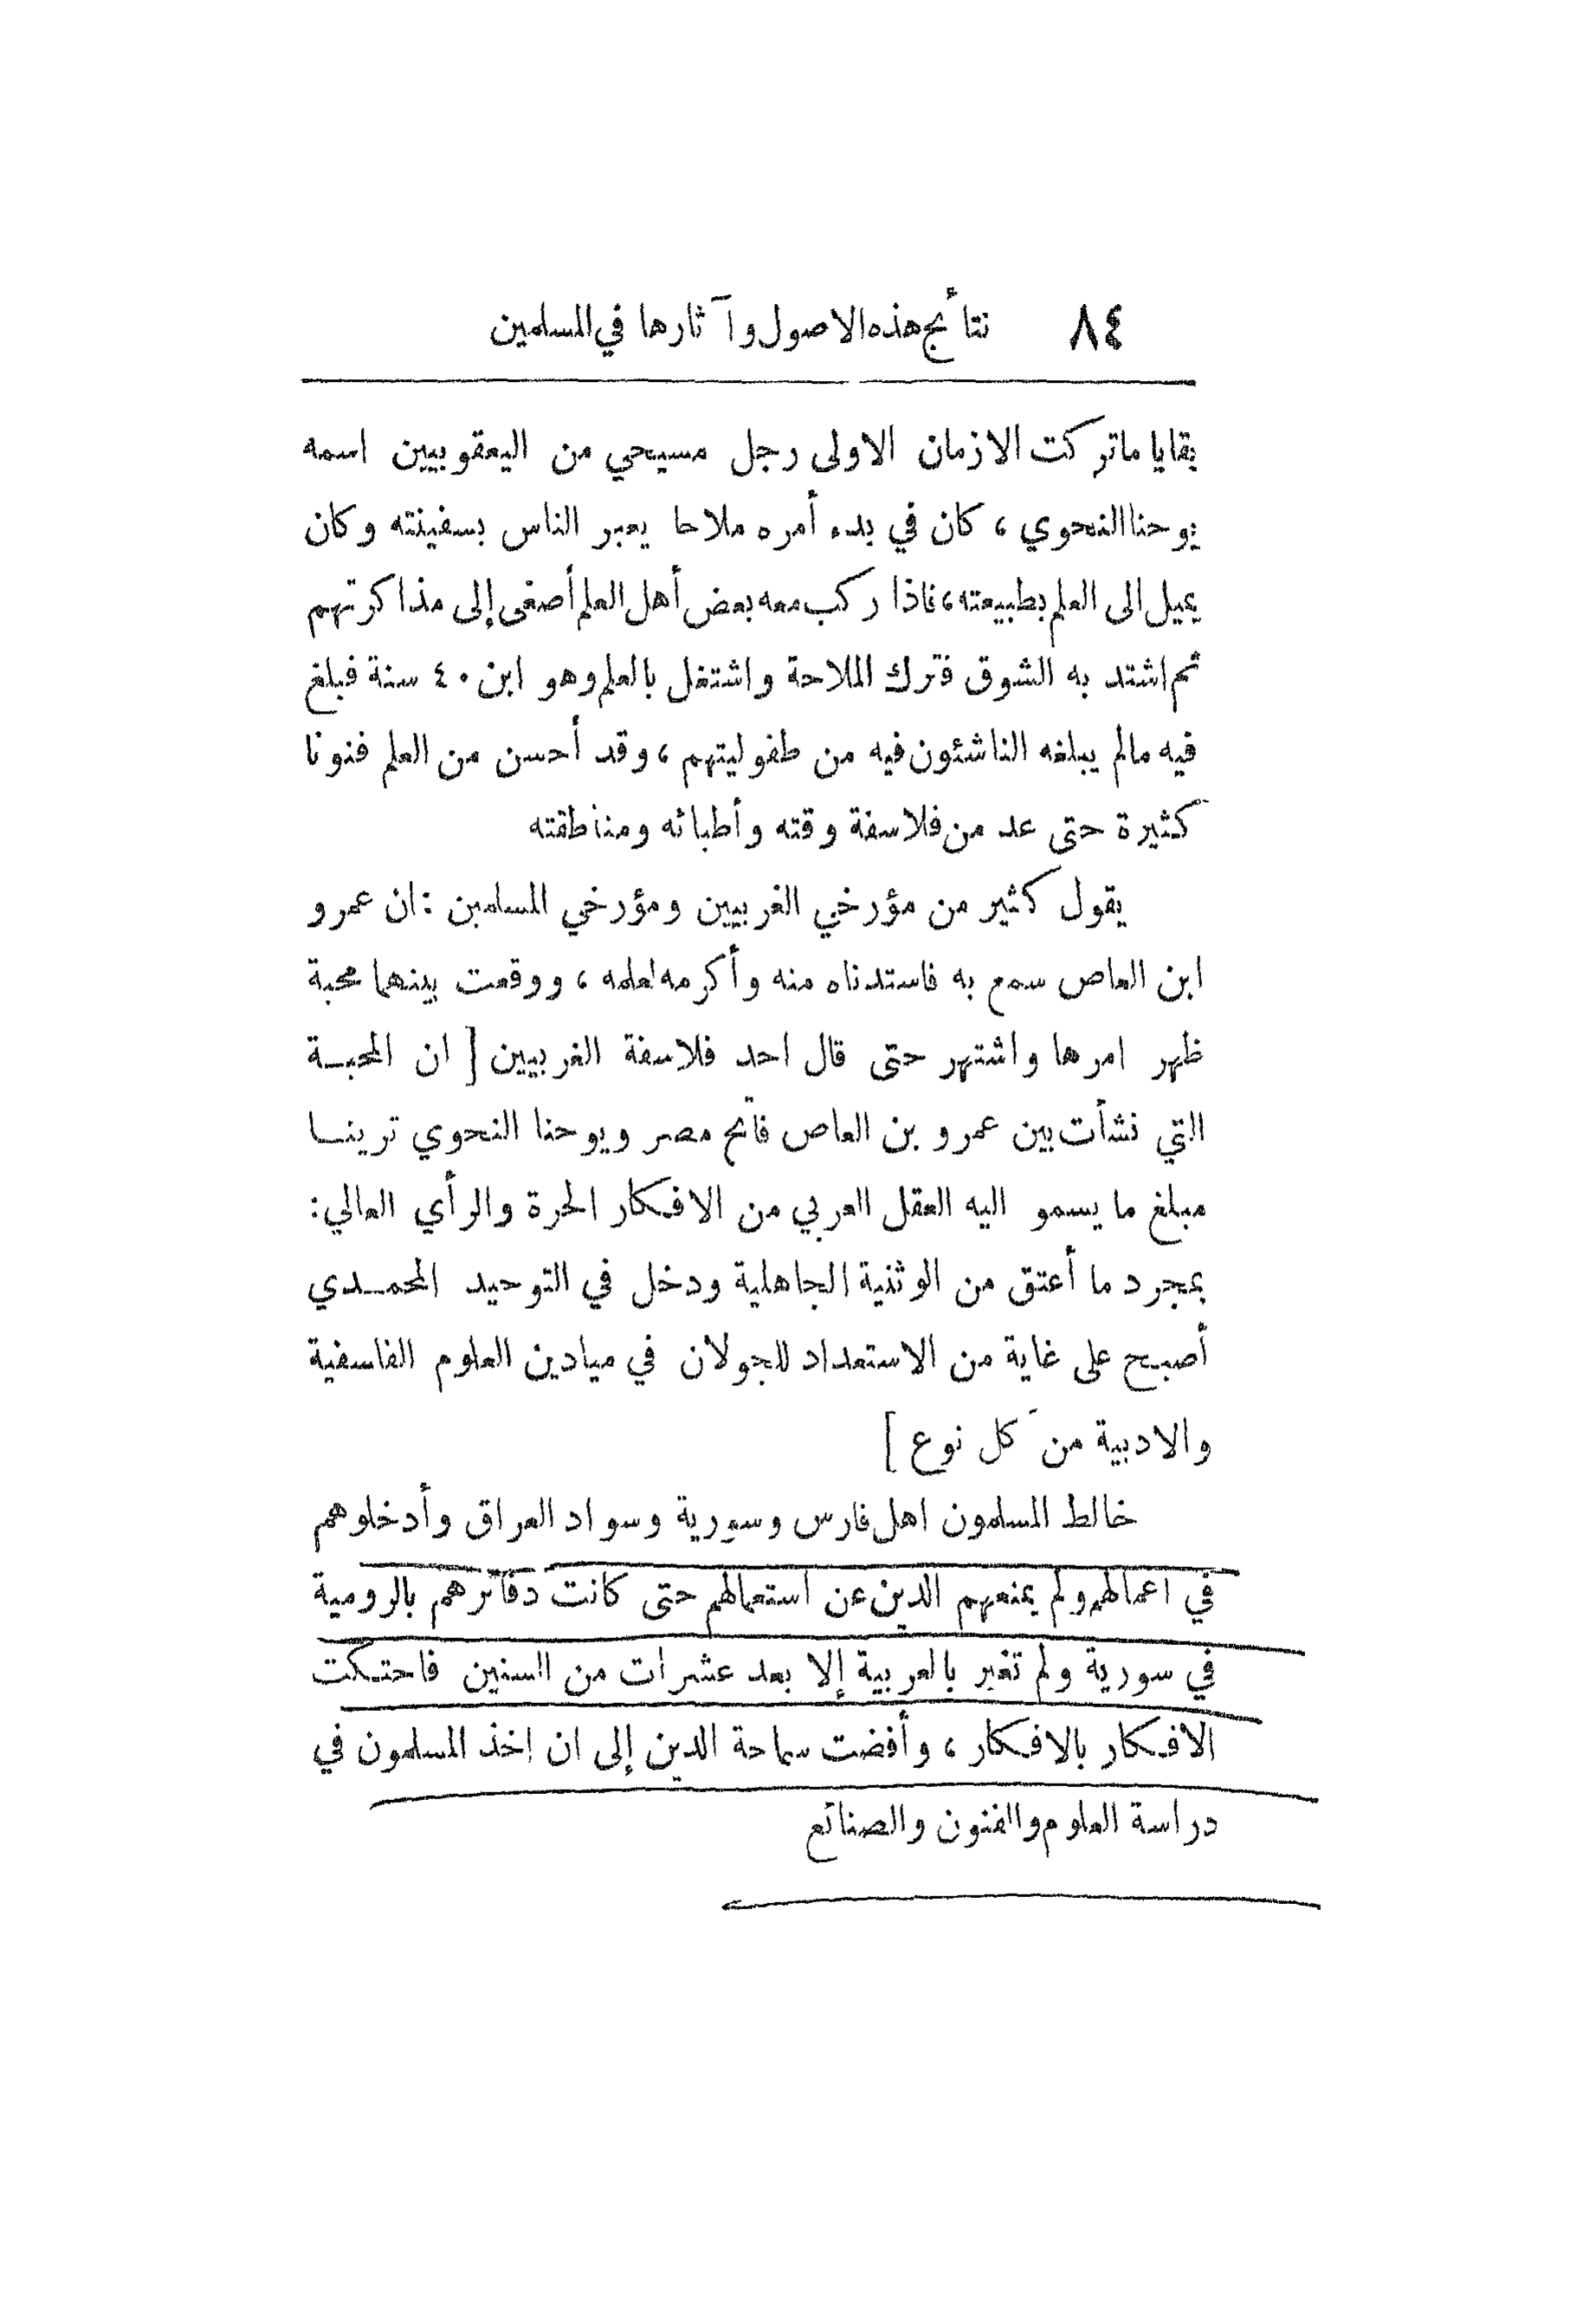 ٨٤ نتائج هذه الاصول وآثارها في المسلمين
بقايا ماتركت الازمان الاولى رجل مسيحي من اليعقوبيين اسمه
يوحنا النحوي ، كان في بدء أمره ملاحا يعبر الناس بسفينته وكان
يميل الى العلم بطبيعته، فاذا ركب معه بعض أهل العلم أصغى إلى مذاكرتهم
ثم اشتد به الشوق فترك الملاحة واشتغل بالعلم وهو ابن ٤٠ سنة فبلغ
فيه مالم يبلغه الناشئون فيه من طفوليتهم ، وقد أحسن من العلم فنونا
كثيرة حتى عد من فلاسفة وقته وأطبائه ومناطقته
يقول كثير من مؤرخي الغربيين ومؤرخي المسلمين : ان عمرو
ابن العاص سمع به فاستدناه منه وأكرمه لعلمه ، ووقعت بينهما محبة
ظهر امرها واشتهر حتى قال احد فلاسفة الغربيين [ ان المحبة
التي نشأت بين عمرو بن العاص فاتح مصر ويوحنا النحوي ترينا
مبلغ ما يسمو اليه العقل العربي من الافكار الحرة والرأي العالي:
بمجرد ما أعتق من الوثنية الجاهلية ودخل في التوحيد المحمدي
أصبح على غاية من الاستعداد للجولان في ميادين العلوم الفلسفية
والادبية من كل نوع ]
خالط المسلمون اهل فارس وسورية وسواد العراق وأدخلوهم
في اعمالهم ولم يمنعهم الدين عن استعمالهم حتى كانت دفاترهم بالرومية
في سورية ولم تغير بالعربية إلا بعد عشرات من السنين فاحتكت
الافكار بالافكار ، وأفضت سماحة الدين إلى ان اخذ المسلمون في
دراسة العلوم والفنون والصنائع